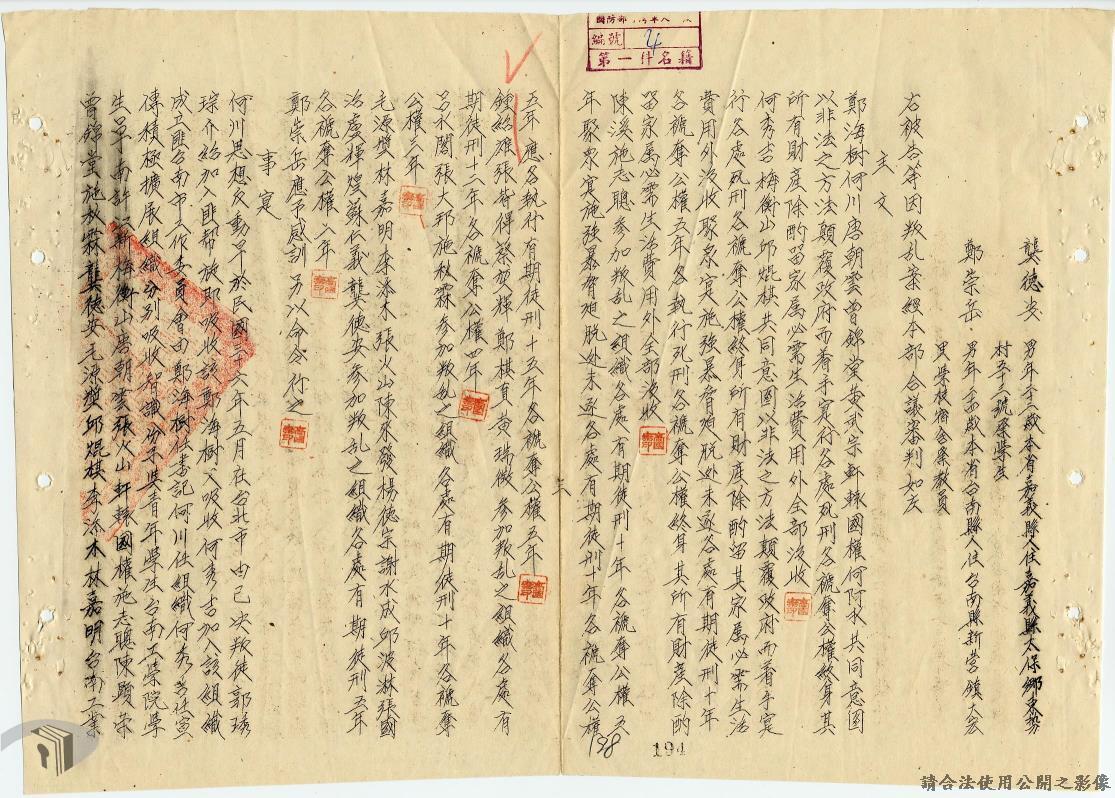 國防部
編號 4
第一件名籍
龔德安 男年二十一歲本省嘉義縣人住嘉義縣太保鄉東勢
村五十二號業學生
鄭崇岳 男年二十四歲本省台南縣人住台南縣新營鎮大宏
里 業校宿舍業教員
右被告等因叛乱案經本部合議審判如左
主文
鄭海樹何川唐朝雲曾錦堂黃武宗軒轅國權何阿水共同意圖
以非法之方法顛覆政府而着手实行各處死刑各褫奪公權終身其
所有財產除酌留家屬必需生活費用外全部沒收
何秀吉梅衡山邱焜棋共同意圖以非法之方法顛覆政府而着手实
行各處死刑各褫奪公權終身所有財產除酌留其家屬必需生活
費用外沒收聚眾实施強暴脅廹脫逃未遂各處有期徒刑十年
各褫奪公權五年各執行死刑各褫奪公權終身其所有財產除酌
留家屬必需生活費用外全部沒收
陳溪施志聰參加叛乱之組織各處有期徒刑十年各褫奪公權五
年聚眾实施強暴脅廹脫逃未遂各處有期徒刑十年各褫奪公權
三
五年應各執行有期徒刑十五年各褫奪公權五年
鍾紹雄張皆得蔡榮輝鄭棋真黃瑞徵參加叛乱之組織各處有
期徒刑十二年各褫奪公權四年
呂水閣張大邦施教霖參加叛乱之組織各處有期徒刑十年各褫奪
公權三年
毛源奨林嘉明李添木張火山陳來發楊德宗謝水成邱波淋張國
治盧輝煌蘇仁義龔德安參加叛乱之組織各處有期徒刑五年
各褫奪公權二年
鄭崇岳應予感訓另以命令行之
事实
何川思想反動早於民國三十六年五月在台北市由已決叛徒郭琇
琮介紹加入匪幫旋即吸收該鄭海樹又吸收何秀吉加入該組織
成立匪台南市工作委員會由鄭海樹任書記何川任組織何秀吉任宣
傳積極擴展組織分別吸收智識份子與青年學生台南工業院學
生 梅衡山唐朝雲張火山軒轅國權施志聰陳顯宗
曾錦堂施教霖龔德安毛源奨邱焜棋李添木林嘉明台南工業
198
194
請合法使用公開之影像